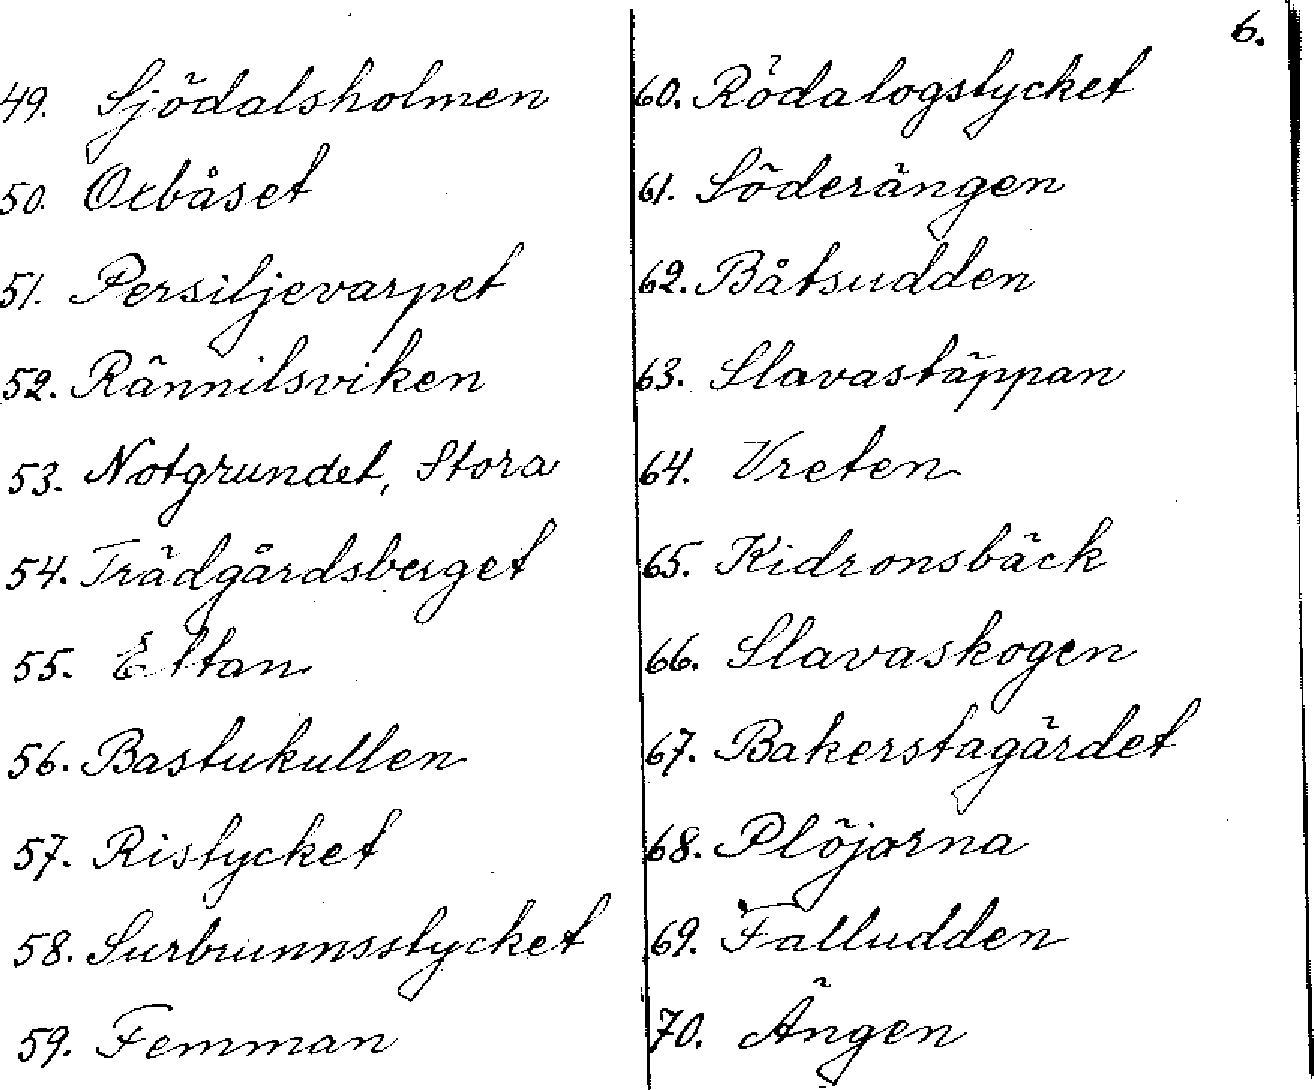 6.
49. Sjödalsholmen
50. Oxbåset
51. Persiljevarpet
52. Rännilsviken
53. Notgrundet, Stora
54. Trädgårdsberget
55. Ettan
56. Bastukullen
57. Ristycket
58. Surbrunnsstycket
59. Femman
60. Rödalogstycket
61. Söderängen
62. Båtsudden
63. Slavastäppan
64. Vreten
65. Kidronsbäck
66. Slavaskogen
67. Bakerstagärdet
68. Plöjorna
69. Falludden
70. Ängen